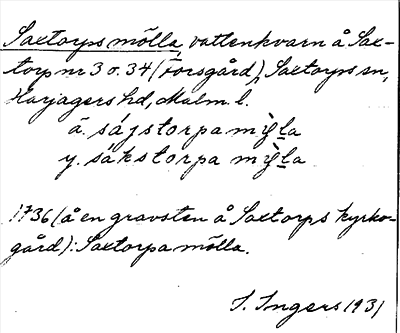 Saxtorps mölla, vattenkvarn å Sax-
torp nr 3 o. 34 (Forsgård), Saxtorps sn,
Harjagers hd, Malm. l.
ä. sájstorpa mỳla
y. sákstorpa mỳla
1736 (å en gravsten å Saxtorps kyrko-
gård): Saxtorpa mölla.
I. Ingers 1931